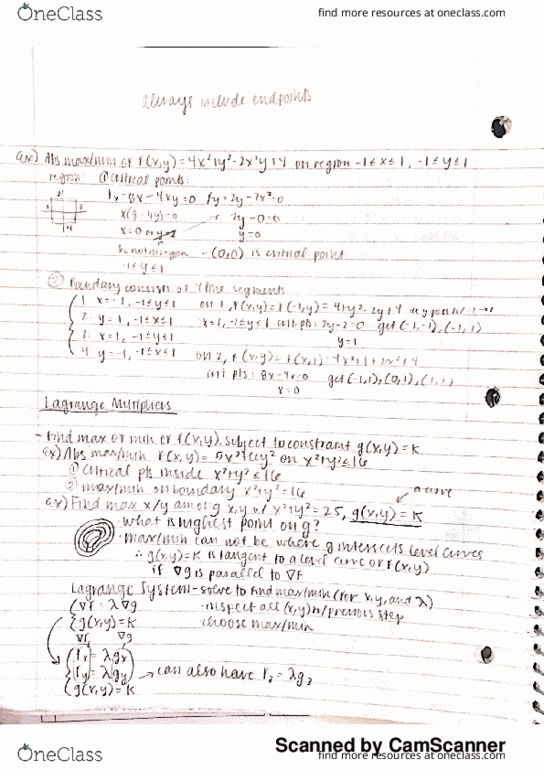 OneClass
find more resources at oneclass.com
always include endpoints
ex) Abs max/min of f(x,y) = 4x²+y²-2x²y+4 on region -1≤x≤1, -1≤y≤1
region: ① critical points:
fx = 8x - 4xy = 0 fy = 2y - 2x² = 0
2y - 0 = 0
x=0 or y=2 y=0
(0,0) is critical point
-1≤y≤1
② Boundary consists of 4 line segments
1. x=-1, -1≤y≤1 on 1, f(x,y) = f(-1,y) = 4+y²-2y+4
2. y=1, -1≤x≤1 crit pts: 2y-2=0 get (-1,-1), (-1,1)
3. x=1, -1≤y≤1 y=1
4. y=-1, -1≤x≤1 on 2, f(x,y) = f(x,1) = 4x²+1-2x²+4
crit pts: 8x-4x=0 get (-1,1), (0,1), (1,1)
x=0
Lagrange Multipliers
- Find max or min of f(x,y), subject to constraint g(x,y) = K
ex) Abs max/min f(x,y) = on x²+y²≤16
① critical pts inside x²+y²≤16
② max/min on boundary x²+y²=16
a curve
ex) Find max x/y among x,y w/ x²+y²=25, g(x,y) = K
· what is highest point on g?
· max/min can not be where g intersects level curves
∴ g(x,y)=K is tangent to a level curve of f(x,y)
if ∇g is parallel to ∇f
Lagrange System - solve to find max/min (for x,y, and λ)
∇f = λ∇g · inspect all (x,y) in previous step
g(x,y) = K · choose max/min
∇f ∇g
fx = λgx
fy = λgy → can also have fz = λgz
g(x,y) = K
Scanned by CamScanner
OneClass
find more resources at oneclass.com